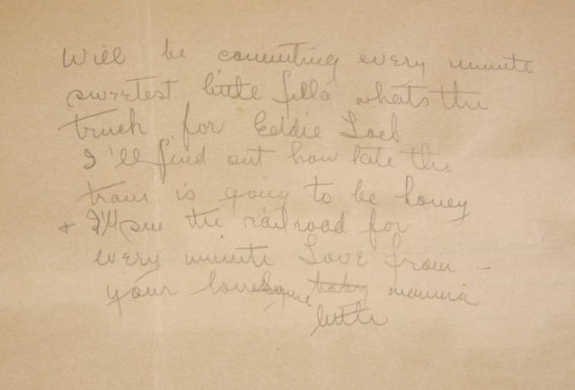 Will be counting every minute
sweetest little fella whats the
truck for Eddie Lock
I'll find out how late the
train is going to be honey
+ I'll sue the railroad for
every minute Love from -
your lonesome baby mamma
little